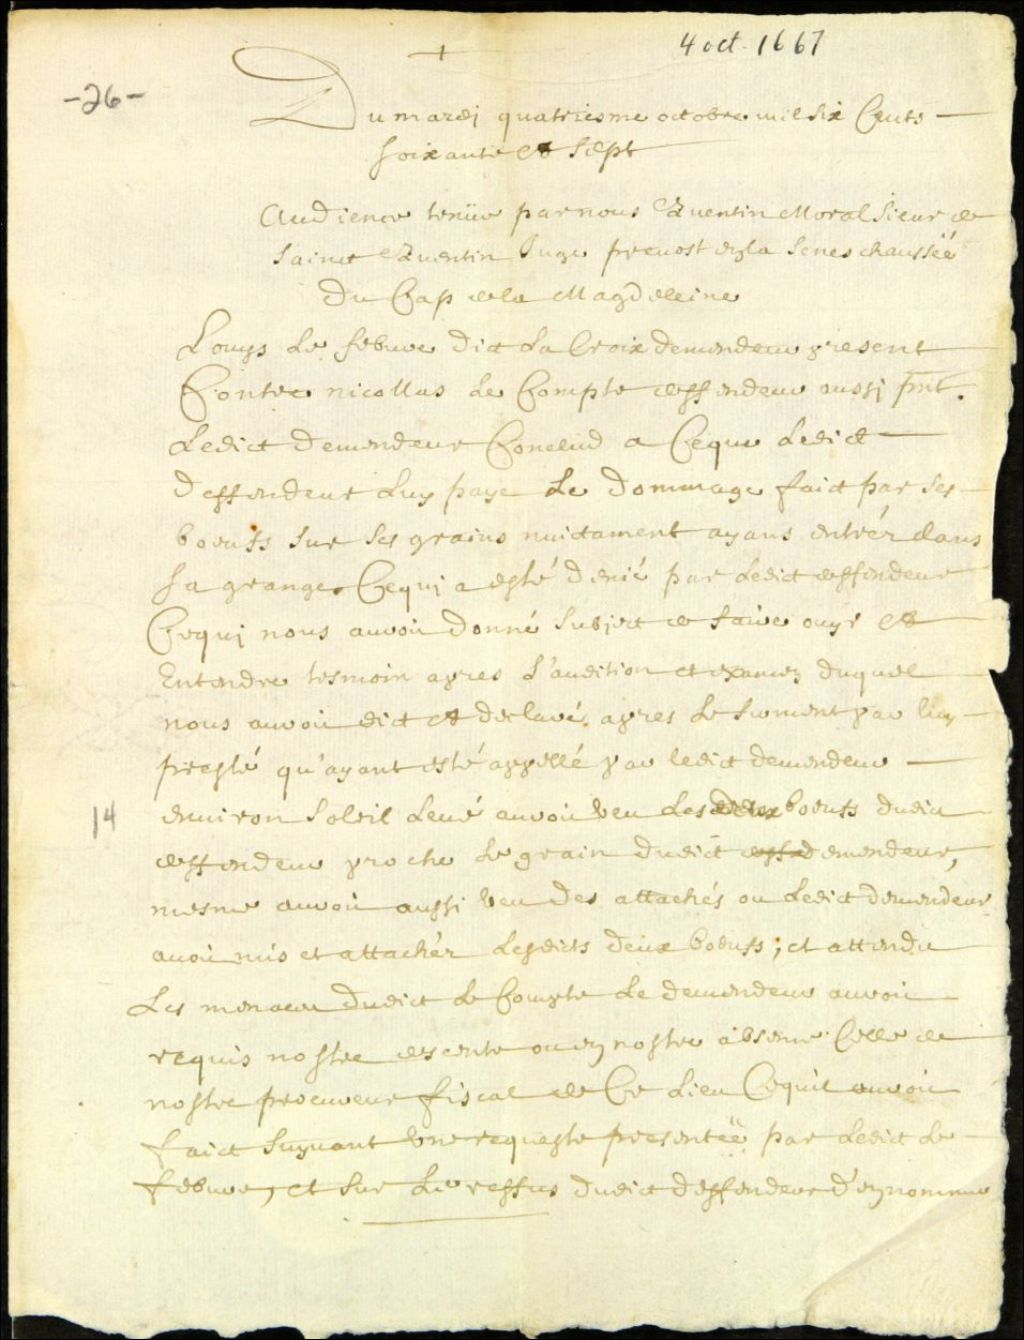 4 oct. 1667
-26-
Du mardj quatriesme octobre mil six Cents
soixante et sept
Audience tenüe par nous Quentin Moral Sieur de
Sainct Quentin Juge prevost en la Seneschaussëe
Du Cap de la Magdeleine
Louys Le febvre dict La Croix demendeur present
Contre nicollas Le Compte deffendeur aussj pnt.
Ledict demendeur Conclud a Ceque Ledict
deffendeur Luy paye Le dommage faict par ses
boeufs sur ses grains nuictament ayans entréz dans
sa grange. Cequj a esté dénié par Ledict deffendeur
Cequj nous auroit donné Subject de faire ouyr et
Entendre tesmoin apres L'audition et examen duquel
nous auroit dict et declaré. apres Le serment par luy
presté qu'ayant esté appellé par ledict demendeur
environ Soleil Levé auroit veu Les deux boeufs dudict
deffendeur proche Le grain dudict deff demendeur,
mesme auroit aussi veu des attachés ou Ledict demendeur
avoit mis et attachér Lesdicts deux boeufs; et attendu
Les menaces dudict Le Compte Le demendeur auroit
requis nostre descente ou en nostre absence Celle de
nostre procureur fiscal de Ce Lieu Cequil auroit
faict suyvant une requeste presentëe par Ledict Le
febvre, et sur Le reffus dudict deffendeur d'en nommer
14